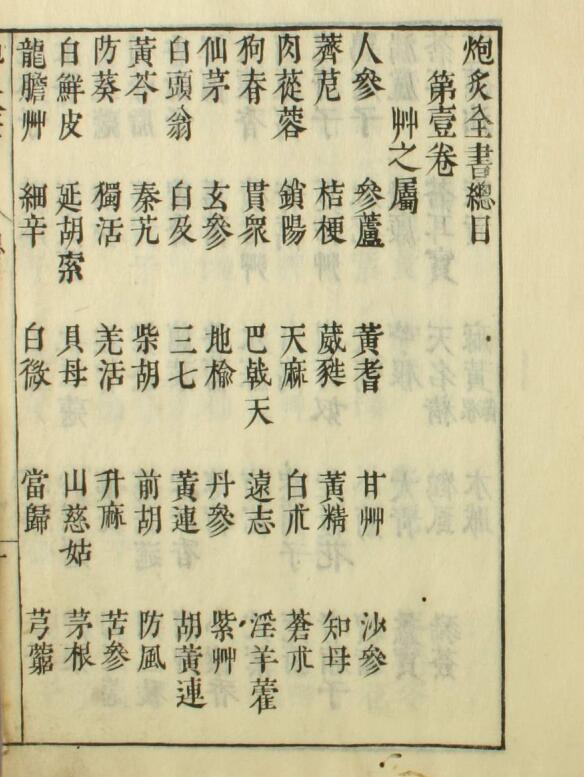 炮炙全書總目
第壹卷
艸之屬
人參 參蘆 黃耆 甘艸 沙參
薺苨 桔梗 葳蕤 黃精 知母
肉蓯蓉 鎖陽 天麻 白朮 蒼朮
狗脊 貫衆 巴戟天 遠志 淫羊藿
仙茅 玄參 地榆 丹參 紫艸
白頭翁 白及 三七 黃連 胡黃連
黃芩 秦艽 柴胡 前胡 防風
防葵 獨活 羌活 升麻 苦參
白鮮皮 延胡索 貝母 山慈姑 茅根
龍膽艸 細辛 白微 當歸 芎藭